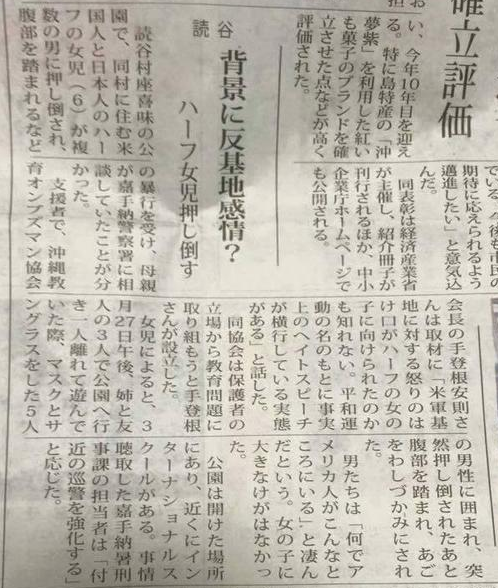 確立評価
おい、今年10年目を迎え
る。特に島特産の「沖
夢紫」を利用した紅い
も菓子のブランドを確
立させた点などが高く
評価された。
ている
後も市民の
期待に応えられるよう
邁進したい」と意気込
んだ。
同表彰は経済産業省
が主催し、紹介冊子が
刊行されるほか、中小
企業庁ホームページで
も公開される。
読谷
背景に反基地感情?
ハーフ女児押し倒す
読谷村座喜味の公
園で、同村に住む米
国人と日本人のハー
フの女児(6)が複
数の男に押し倒され、
腹部を踏まれるなど
の暴行を受け、母親
が嘉手納警察署に相
談していたことが分
かった。
支援者で、沖縄教
育オンブズマン協会
会長の手登根安則さ
んは取材に「米軍基
地に対する怒りのは
け口がハーフの女の
子に向けられたのか
も知れない。平和運
動の名のもとに事実
上のヘイトスピーチ
が横行している実態
がある」と話した。
同協会は保護者の
立場から教育問題に
取り組もうと手登根
さんが設立した。
女児によると、3
月27日午後、姉と友
人の3人で公園へ行
き一人離れて遊んで
いた際、マスクとサ
ングラスをした5人
の男性に囲まれ、突
然押し倒されたあと
腹部を踏まれ、あご
をわしづかみにされ
た。
男たちは「何でア
メリカ人がこんなと
ころにいる」と凄ん
だという。女の子に
大きなけがはなかっ
た。
公園は開けた場所
にあり、近くにイン
ターナショナルス
クールがある。事情
聴取した嘉手納署刑
事課の担当者は「付
近の巡警を強化する」
と応じた。